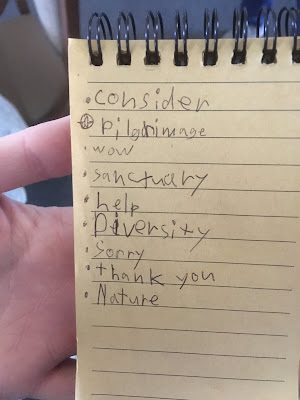 • consider
• pilgrimage
• wow
• sanctuary
• help
• Diversity
• Sorry
• thank you
• Nature